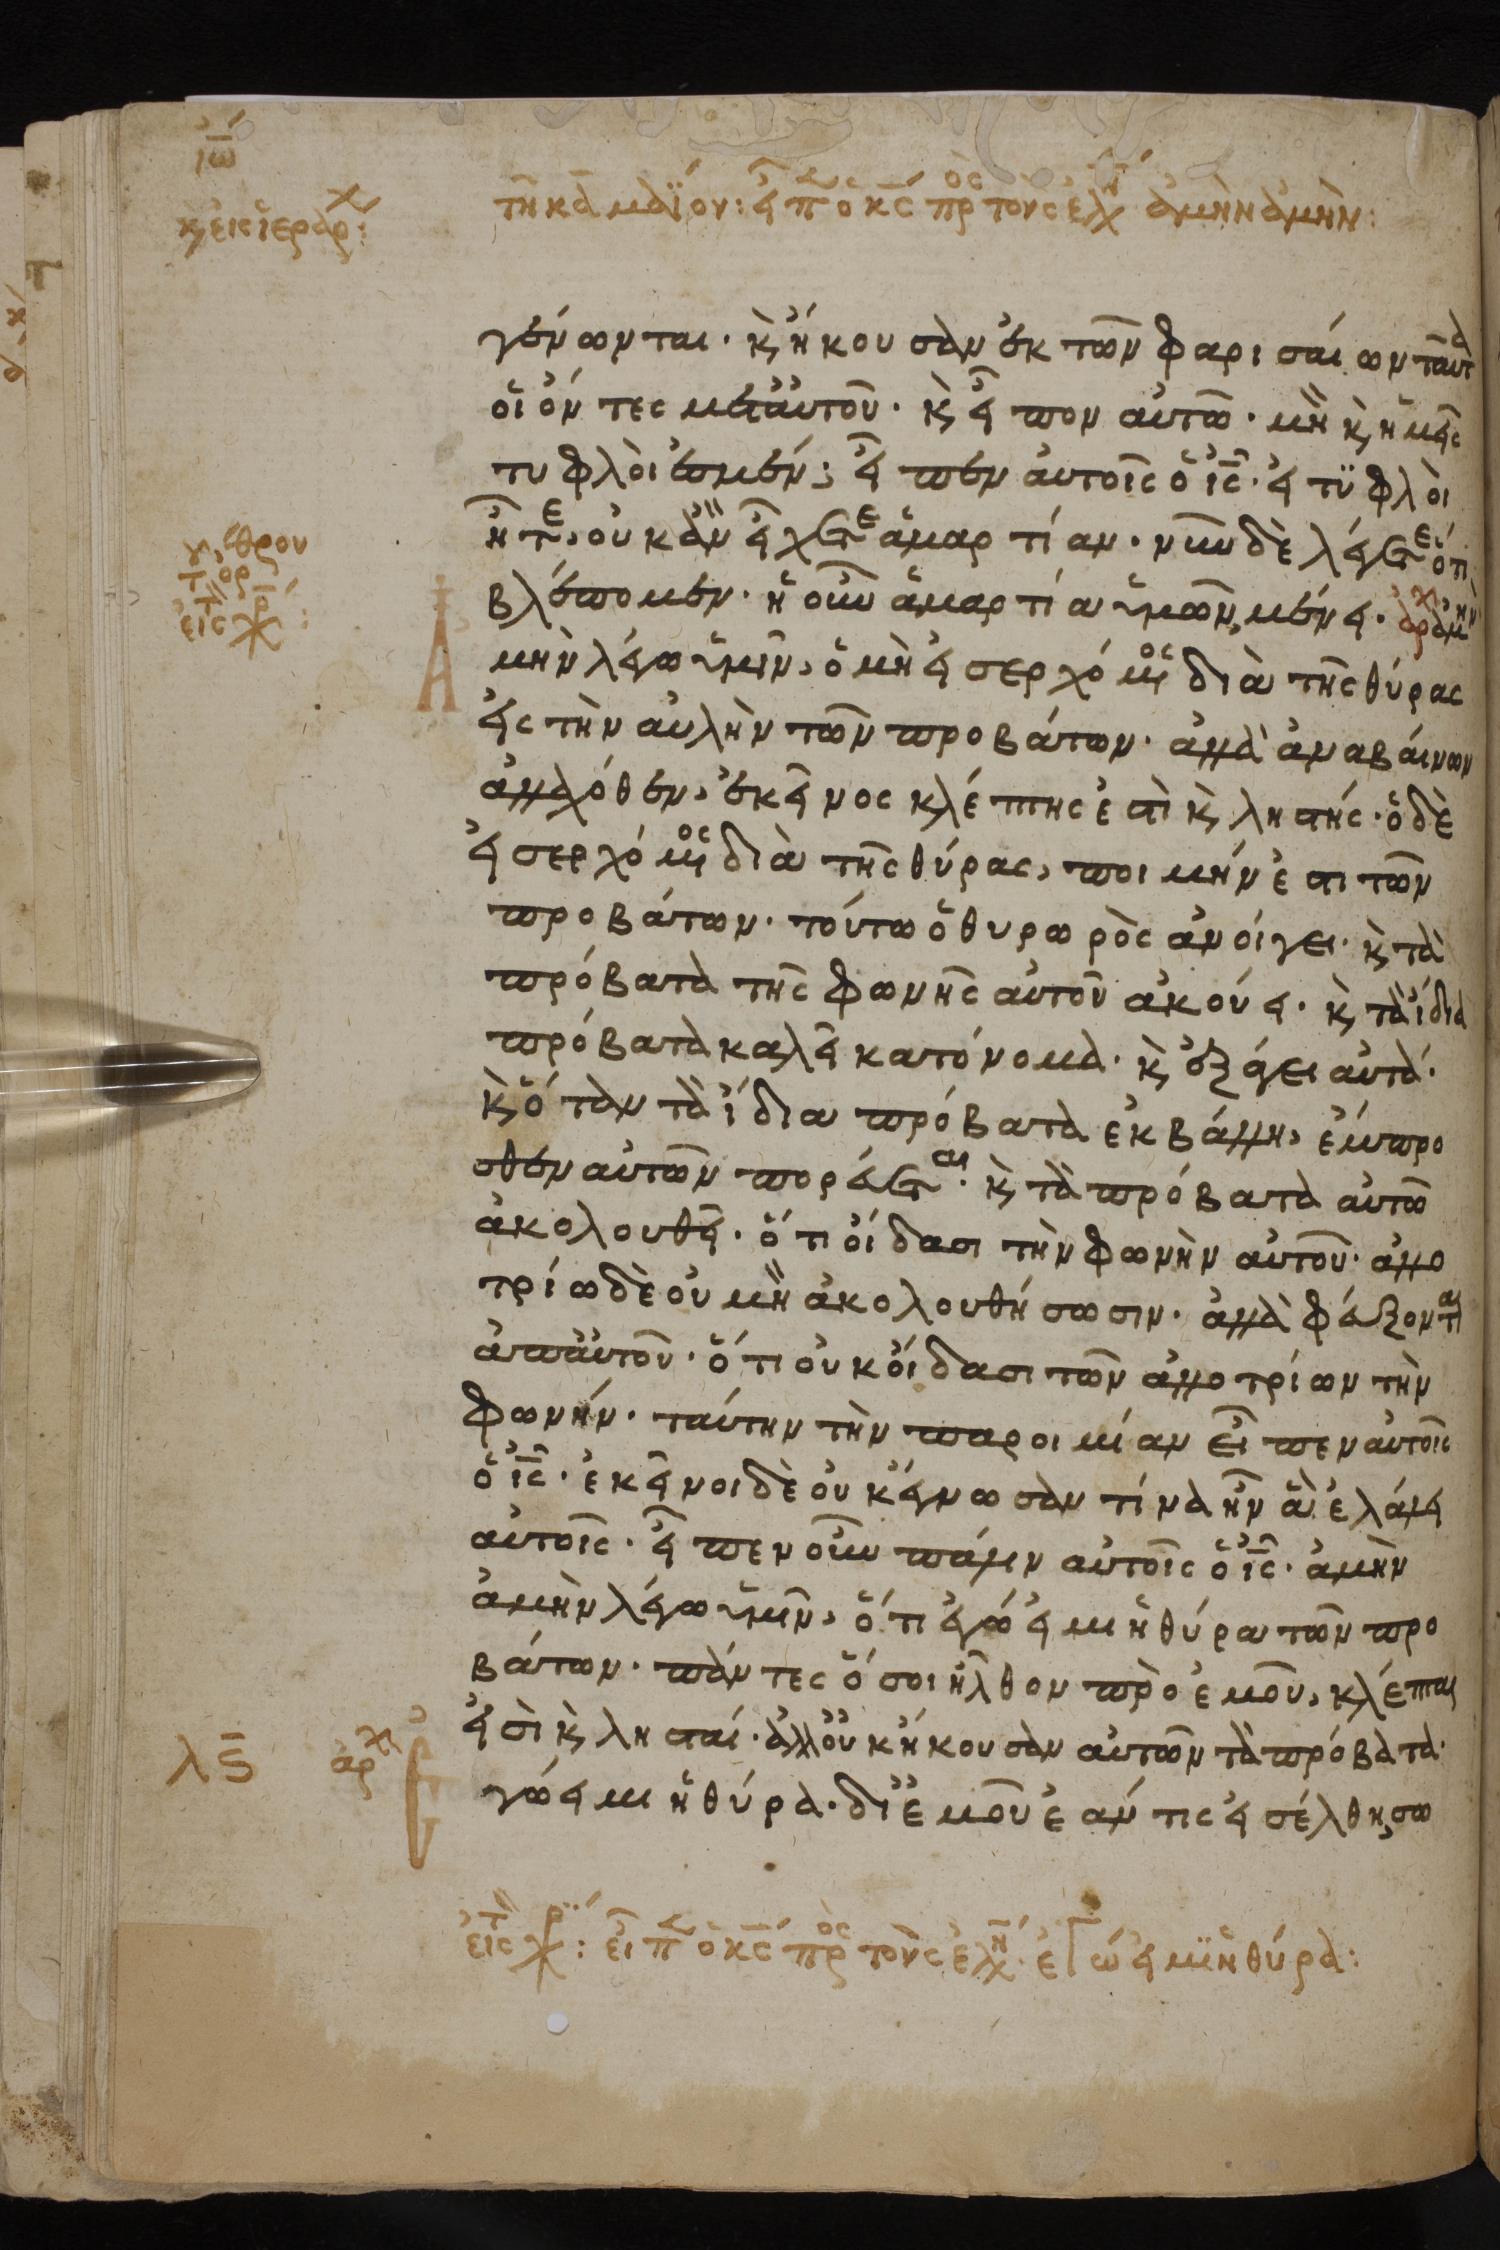 ἰω
κ εἰς ἱεράρχ:
τῆ κα μαΐου: εἶπ ὁ κς πρὸς τοὺς ἐλ ἀμὴν ἀμὴν:
γένωνται. κ ἤκουσαν ἐκ τῶν φαρισαίων ταῦτα
οἱ ὄντες μετ' αὐτοῦ. κ εἶπον αὐτῶ. μὴ κ ἡμεῖς
τυφλοὶ ἐσμέν; εἶπεν αὐτοῖς ὁ ἰς. εἰ τυφλοὶ
ἦτε, οὐκ ἂν εἴχετε ἁμαρτίαν. νῦν δὲ λέγετε ὅτι
βλέπομεν. ἡ οὖν ἁμαρτία ὑμῶν, μένει. ἀρχ ἀμὴν
εἰς
Ἀ
μὴν λέγω ὑμῖν, ὁ μὴ εἰσερχόμενος διὰ τῆς θύρας
εἰς τὴν αὐλὴν τῶν προβάτων. ἀλλὰ ἀναβαίνων
ἀλλαχόθεν, ἐκεῖνος κλέπτης ἐστὶ κ ληστής. ὁ δὲ
εἰσερχόμενος διὰ τῆς θύρας, ποιμήν ἐστι τῶν
προβάτων. τούτω ὁ θυρωρὸς ἀνοίγει. κ τὰ
πρόβατα τῆς φωνῆς αὐτοῦ ἀκούει. κ τὰ ἴδια
πρόβατα καλεῖ κατ' ὄνομα. κ ἐξάγει αὐτά.
κ ὅταν τὰ ἴδια πρόβατα ἐκβάλλη, ἔμπρο
σθεν αὐτῶν πορεύεται. κ τὰ πρόβατα αὐτῶ
ἀκολουθεῖ. ὅτι οἴδασι τὴν φωνὴν αὐτοῦ. ἀλλο
τρίω δὲ οὐ μὴ ἀκολουθήσωσιν. ἀλλὰ φεύξονται
ἀπ' αὐτοῦ. ὅτι οὐκ οἴδασι τῶν ἀλλοτρίων τὴν
φωνήν. ταύτην τὴν παροιμίαν εἶπεν αὐτοῖς
ὁ ἰς. ἐκεῖνοι δὲ οὐκ ἔγνωσαν τίνα ἦν ἃ ἐλάλει
αὐτοῖς. εἶπεν οὖν πάλιν αὐτοῖς ὁ ἰς. ἀμὴν
ἀμὴν λέγω ὑμῖν, ὅτι ἐγώ εἰμι ἡ θύρα τῶν προ
βάτων. πάντες ὅσοι ἦλθον πρὸ ἐμοῦ, κλέπται
εἰσὶ κ λησταί. ἀλλ' οὐκ ἤκουσαν αὐτῶν τὰ πρόβατα.
λς ἀρχ Ἐ
γώ εἰμι ἡ θύρα. δι' ἐμοῦ ἐάν τις εἰσέλθη, σω
εἰς: εἶπ ὁ κς πρὸς τοὺς ἐλ ἐγώ εἰμι ἡ θύρα: